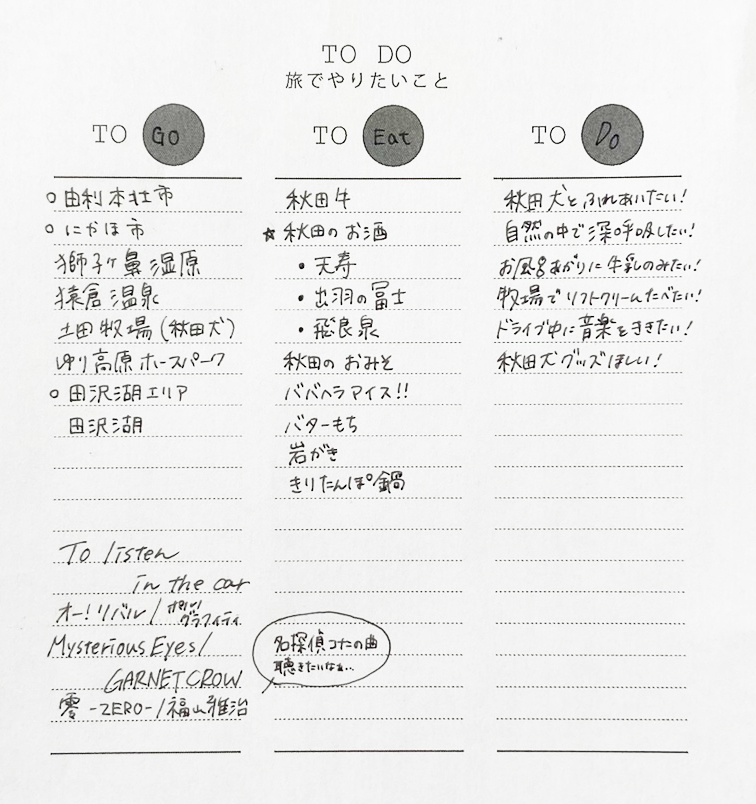 TO DO
旅でやりたいこと
TO Go
○ 由利本荘市
○ にかほ市
獅子ヶ鼻湿原
猿倉温泉
土田牧場(秋田犬)
ゆり高原ホースパーク
○ 田沢湖エリア
田沢湖
To listen
in the car
オー!リバル/ポルノグラフィティ
Mysterious Eyes/
GARNET CROW
零 -ZERO-/福山雅治
TO Eat
秋田牛
☆ 秋田のお酒
・天寿
・出羽の冨士
・飛良泉
秋田のおみそ
ババヘラアイス!!
バターもち
岩がき
きりたんぽ鍋
名探偵コナンの曲
聴きたいなぁ…
TO Do
秋田犬とふれあいたい!
自然の中で深呼吸したい!
お風呂あがりに牛乳のみたい!
牧場でソフトクリームたべたい!
ドライブ中に音楽をききたい!
秋田犬グッズほしい!